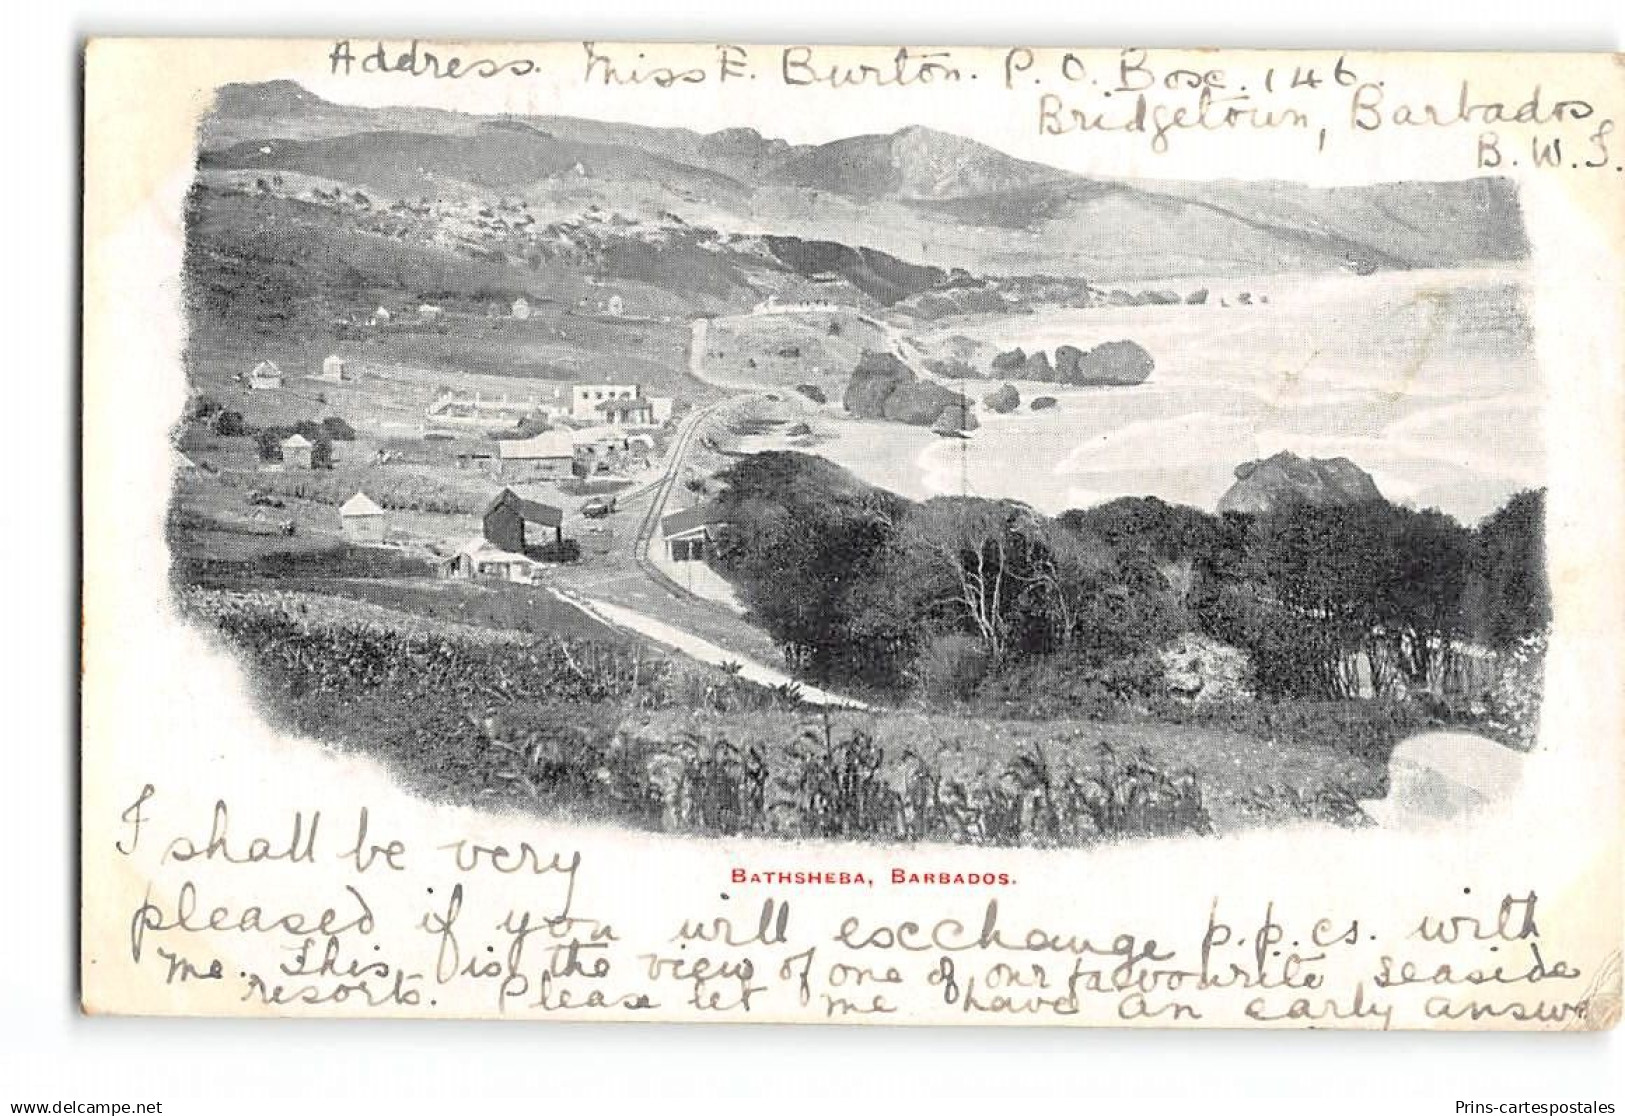 Address. Miss E. Burton. P. O. Box. 146.
Bridgetown, Barbados,
B. W. I.
BATHSHEBA, BARBADOS.
I shall be very
pleased if you will exchange p.p.cs. with
me. This is the view of one of our favourite seaside
resorts. Please let me have an early answe
www.delcampe.net
Prins-cartespostales